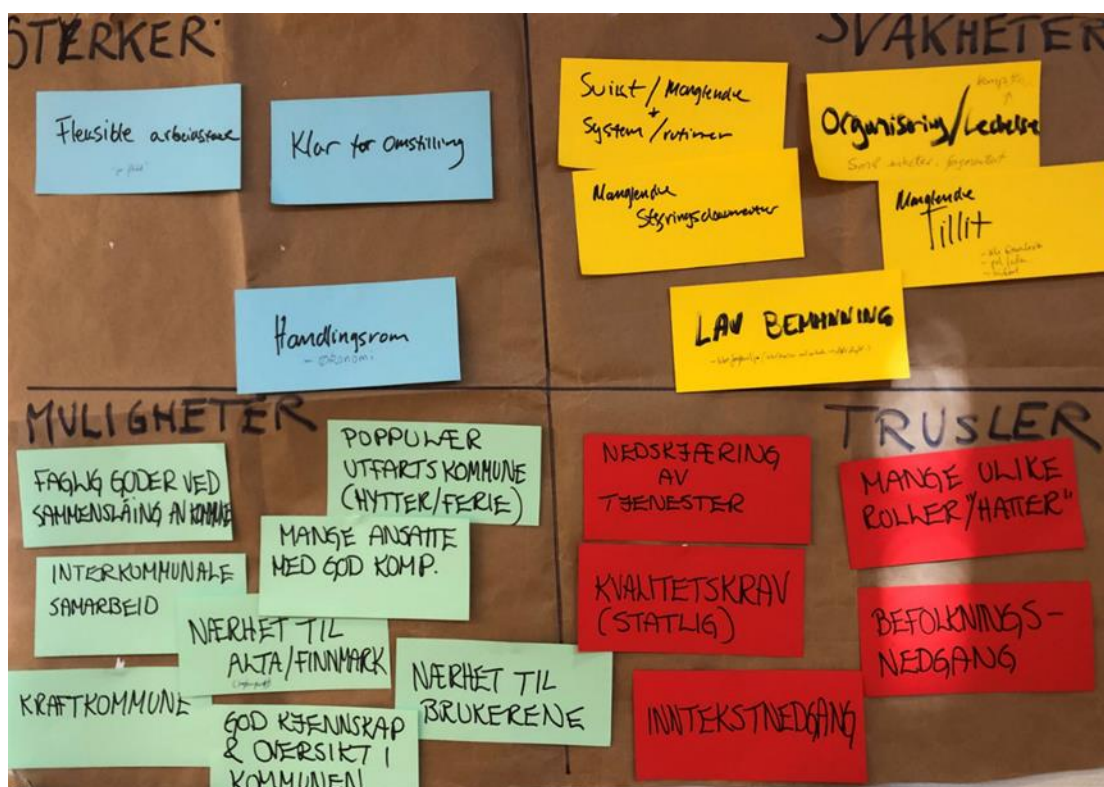 STYRKER:
Fleksible arbeidstakere
Klar for Omstilling
Handlingsrom
- økonomi
SVAKHETER
Svikt/Manglende
+
System/rutiner
Organisering/Ledelse
Små enheter, fragmentert
Manglende
Styringsdokumenter
Manglende
Tillit
LAV BEMANNING
MULIGHETER
FAGLIG GODER VED
SAMMENSLÅING AV KOMMUNE
POPPULÆR
UTFARTSKOMMUNE
(HYTTER/FERIE)
MANGE ANSATTE
MED GOD KOMP.
INTERKOMMUNALE
SAMARBEID
NÆRHET TIL
ALTA/FINNMARK
NÆRHET TIL
BRUKERENE
KRAFTKOMMUNE
GOD KJENNSKAP
& OVERSIKT I
KOMMUNEN
TRUSLER
NEDSKJÆRING
AV
TJENESTER
MANGE ULIKE
ROLLER/"HATTER"
KVALITETSKRAV
(STATLIG)
BEFOLKNINGS-
NEDGANG
INNTEKSTNEDGANG